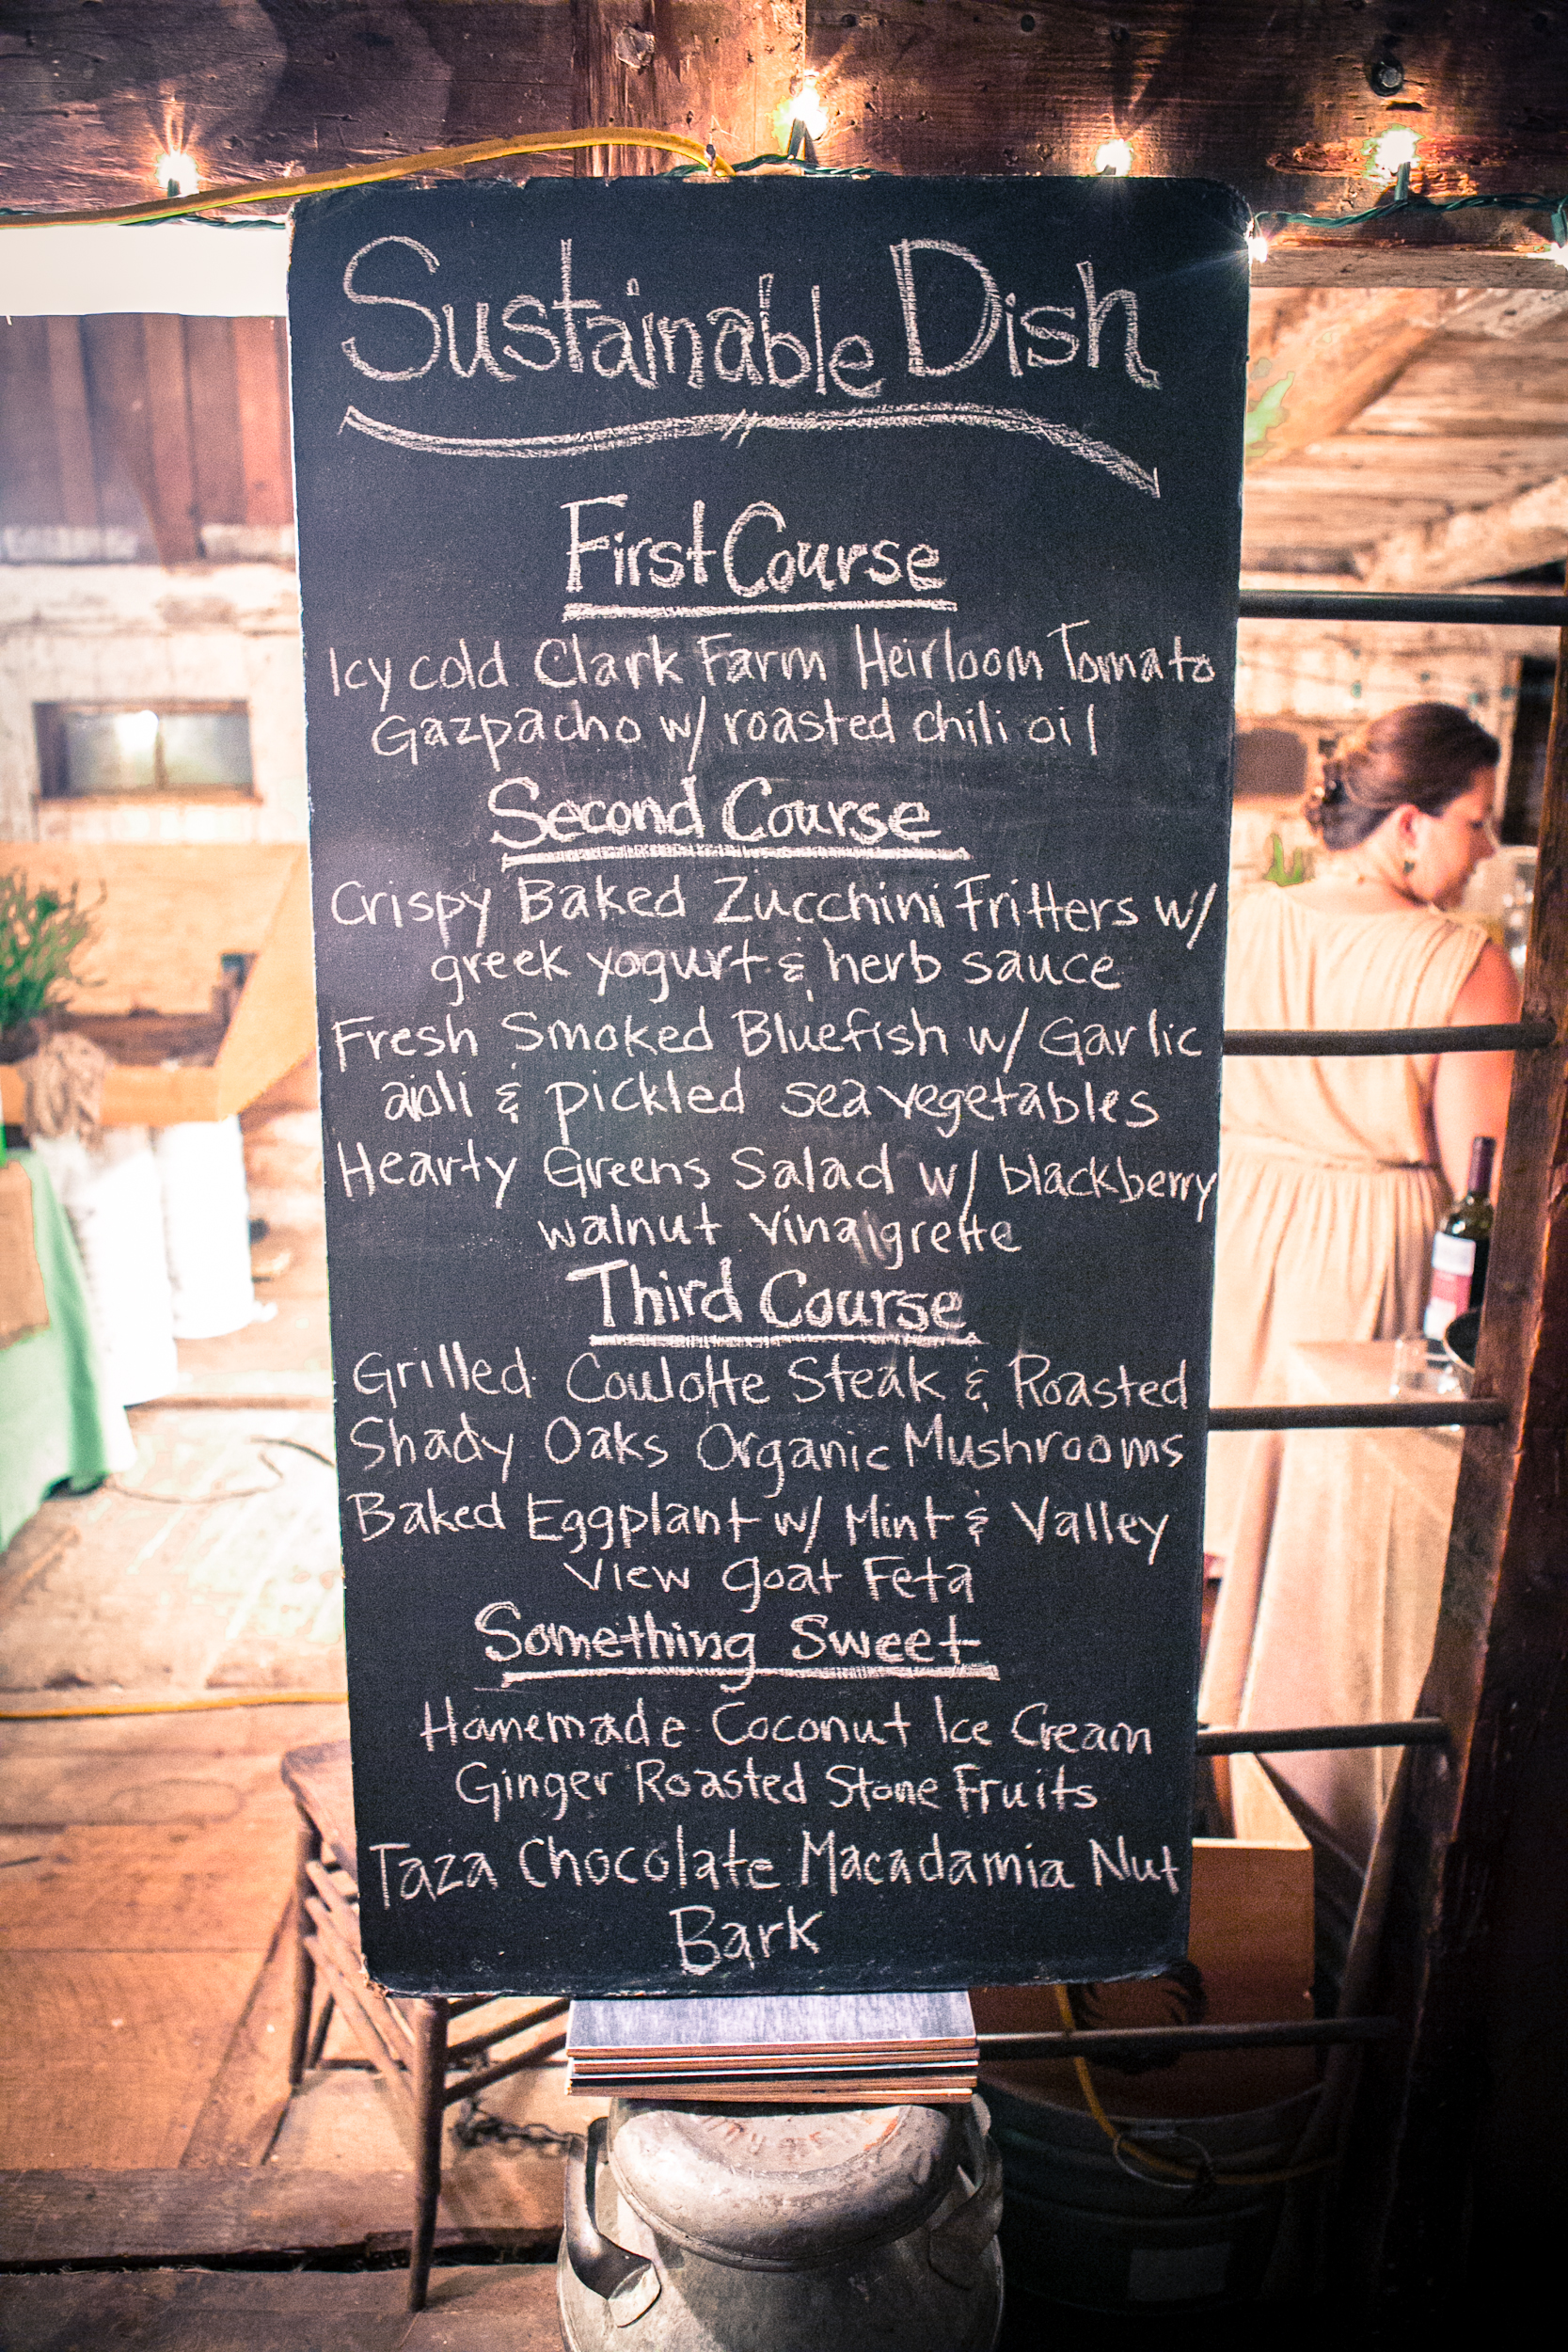 Sustainable Dish
First Course
Icy cold Clark Farm Heirloom Tomato
Gazpacho w/ roasted chili oil
Second Course
Crispy Baked Zucchini Fritters w/
greek yogurt & herb sauce
Fresh Smoked Bluefish w/ Garlic
aioli & pickled sea vegetables
Hearty Greens Salad w/ blackberry
walnut vinaigrette
Third Course
Grilled Coulotte Steak & Roasted
Shady Oaks Organic Mushrooms
Baked Eggplant w/ Mint & Valley
View goat Feta
Something Sweet
Homemade Coconut Ice Cream
Ginger Roasted Stone Fruits
Taza Chocolate Macadamia Nut
Bark